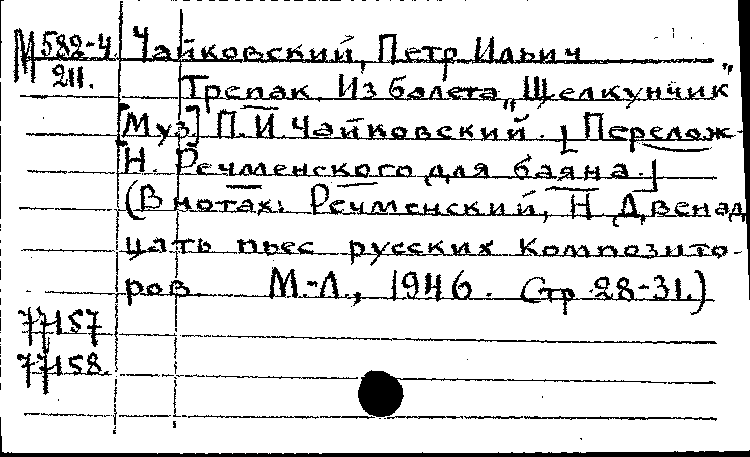 М 582-4 Чайковский, Петр Ильич
211. Трепак. Из балета „Щелкунчик"
[Муз.] П. И. Чайковский. [Перелож.
Н. Речменского для баяна.]
(В нотах: Речменский, Н. Двенад
цать пьес русских композито-
ров. М.-Л., 1946. Стр. 28-31.)
77157
77158.